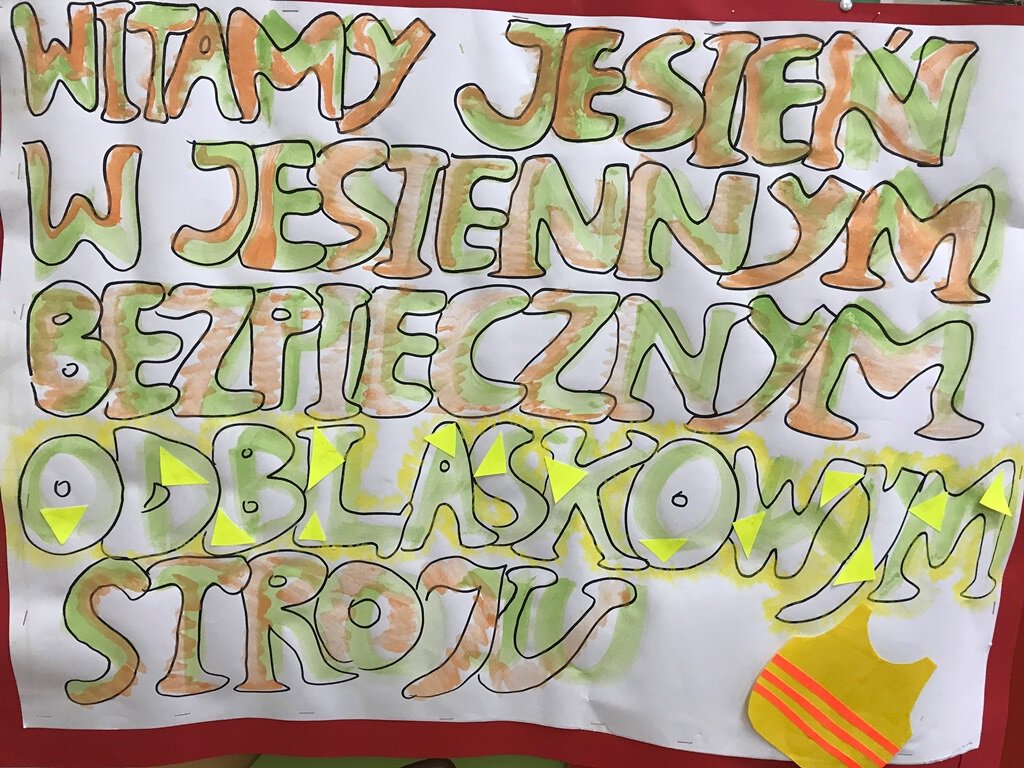 WITAMY JESIEŃ
W JESIENNYM
BEZPIECZNYM
ODBLASKOWYM
STROJU